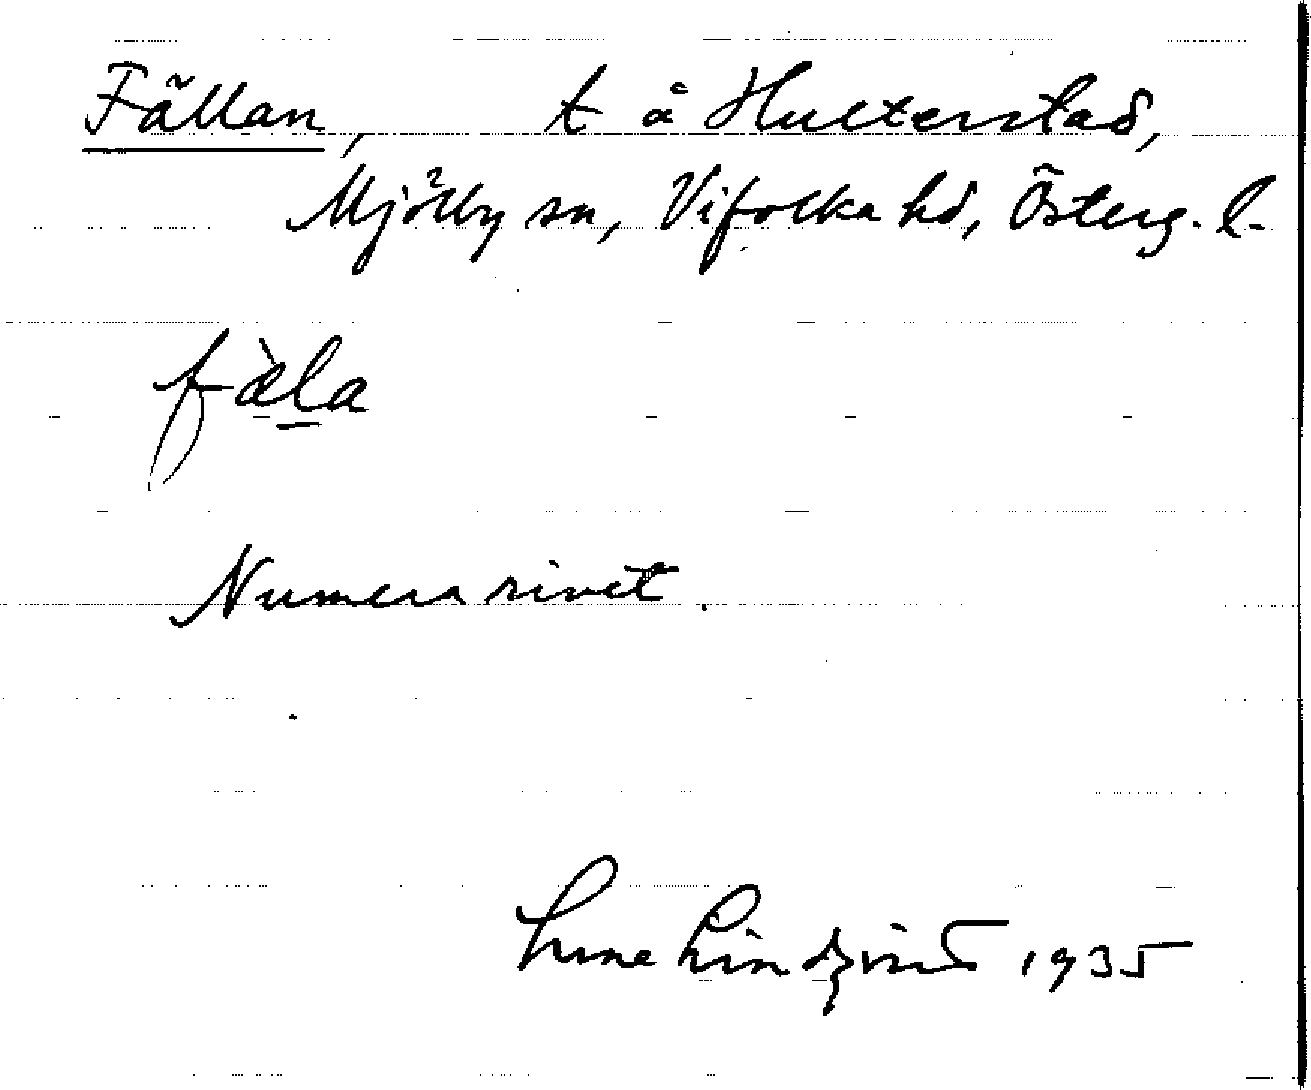 Fällan, t å Hulterstad,
Mjölby sn, Vifolka hd, Österg. l.
fàla
Numera rivet.
Sune Lindqvist 1935